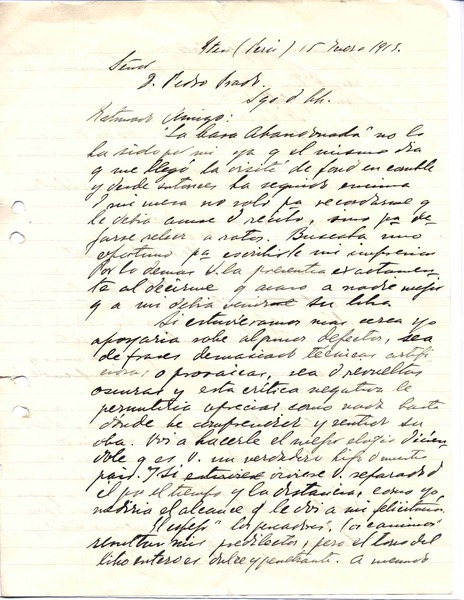 (Perú) 15 Enero 1913.
Señor
D. Pedro Prado.
Sgo d Ch.
Estimado Amigo:
"La Casa Abandonada" no lo
ha sido por mí ya q el mismo día
q me llegó la visité de fond en comble
y desde entonces ha seguido encima
d mi mesa no solo pa recordarme q
le debía acuse d recibo, sino pa de-
jarse releer a ratos. Buscaba un
oportuno pa escribirle mis impresiones
Por lo demás V. la presentía exactamen-
te al decirme q acaso a nadie mejor
q a mí debía su libro.
Si estuviéramos mas cerca yo
apoyaría sobre algunos defectos, sea
de frases demasiado técnicas artifi-
ciosas o prosaicas, sea d revueltas
oscuras y esta crítica negativa le
permitiría apreciar como nada hasta
dónde he comprender y sentir su
oba. Voi a hacerle el mejor elogio dicién-
dole q es V. un verdadero hijo d nuestro
país. I si viviese V. separado d
él po el tiempo y la distancia, como yo,
mediría el alcance q le doi a mi felicitación.
El espejo" los pescadores, los caminos
resultan mis predilectos, pero el tono del
libo entero es dulce y penetrante. A menudo